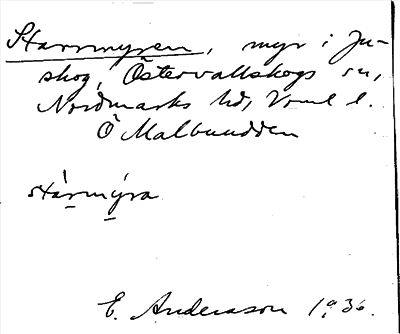 Starrmyren, myr i Ju-
skog, Östervallskogs sn,
Nordmarks hd, Vrml l.
Ö Malbundden
stàrmýra
E. Andersson 1936.